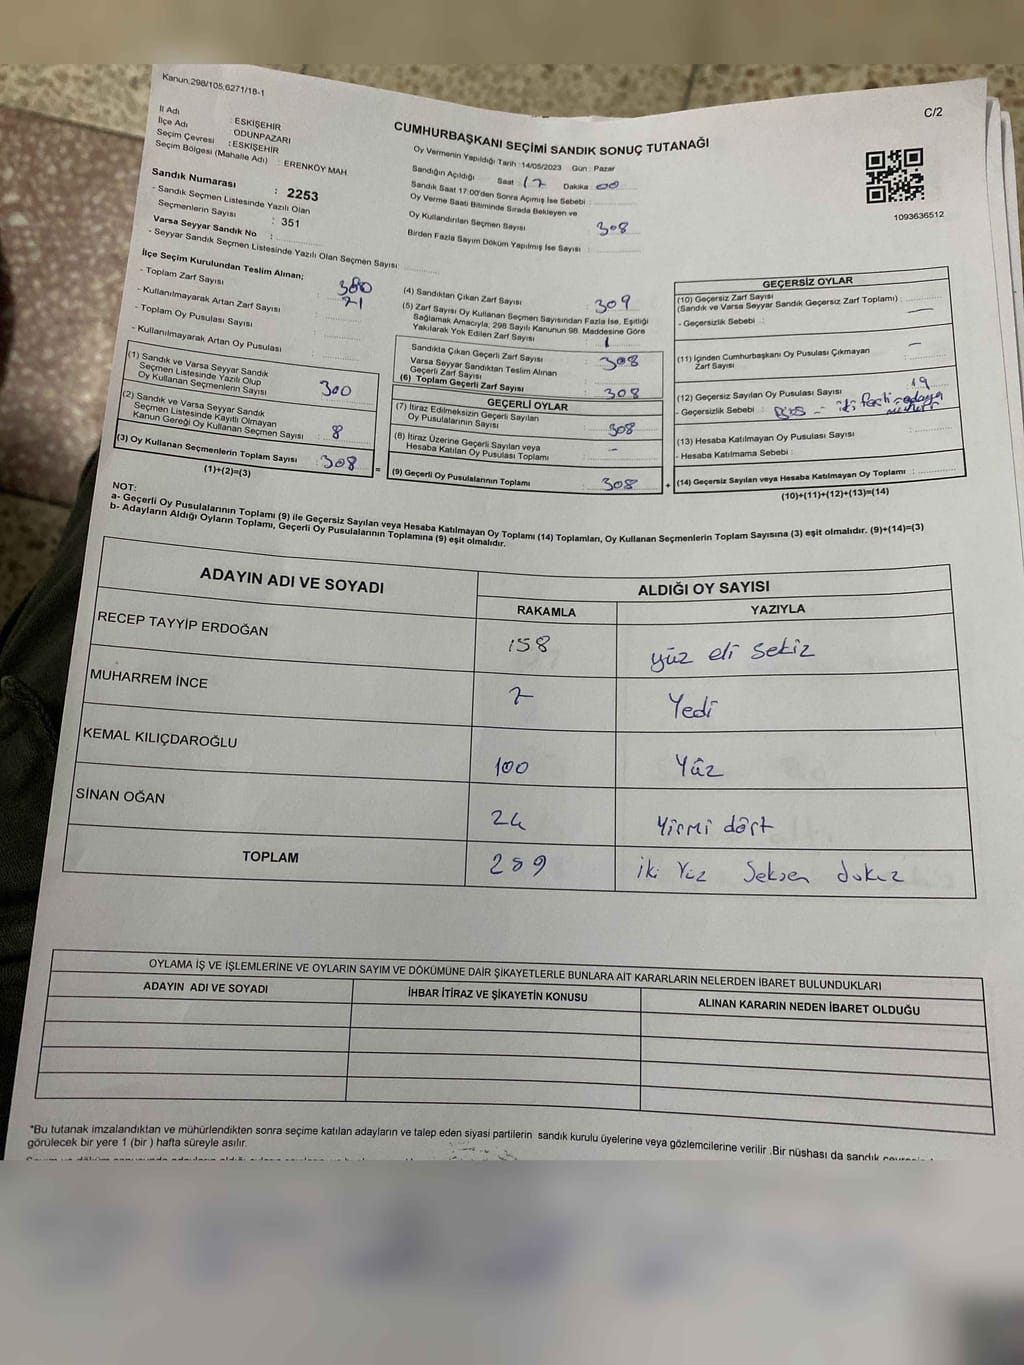 Kanun,298/105,6271/18-1
C/2
İl Adı : ESKİŞEHİR
İlçe Adı : ODUNPAZARI
Seçim Çevresi : ESKİŞEHİR
Seçim Bölgesi (Mahalle Adı) : ERENKÖY MAH
Sandık Numarası : 2253
- Sandık Seçmen Listesinde Yazılı Olan
Seçmenlerin Sayısı : 351
Varsa Seyyar Sandık No :
- Seyyar Sandık Seçmen Listesinde Yazılı Olan Seçmen Sayısı:
CUMHURBAŞKANI SEÇİMİ SANDIK SONUÇ TUTANAĞI
Oy Vermenin Yapıldığı Tarih :14/05/2023 Gün : Pazar
Sandığın Açıldığı Saat : 17 Dakika : 00
Sandık Saat 17:00'den Sonra Açımış İse Sebebi :
Oy Verme Saati Bitiminde Sırada Bekleyen ve
Oy Kullandırılan Seçmen Sayısı : 308
Birden Fazla Sayım Döküm Yapılmış İse Sayısı :
1093636512
İlçe Seçim Kurulundan Teslim Alınan;
- Toplam Zarf Sayısı : 380
- Kullanılmayarak Artan Zarf Sayısı : 71
- Toplam Oy Pusulası Sayısı :
- Kullanılmayarak Artan Oy Pusulası :
(1) Sandık ve Varsa Seyyar Sandık
Seçmen Listesinde Yazılı Olup
Oy Kullanan Seçmenlerin Sayısı : 300
(2) Sandık ve Varsa Seyyar Sandık
Seçmen Listesinde Kayıtlı Olmayan
Kanun Gereği Oy Kullanan Seçmen Sayısı : 8
(3) Oy Kullanan Seçmenlerin Toplam Sayısı : 308 =
(1)+(2)=(3)
(4) Sandıktan Çıkan Zarf Sayısı : 309
(5) Zarf Sayısı Oy Kullanan Seçmen Sayısından Fazla İse, Eşitliği
Sağlamak Amacıyla, 298 Sayılı Kanunun 98. Maddesine Göre
Yakılarak Yok Edilen Zarf Sayısı : 1
Sandıkta Çıkan Geçerli Zarf Sayısı : 308
Varsa Seyyar Sandıktan Teslim Alınan
Geçerli Zarf Sayısı :
(6) Toplam Geçerli Zarf Sayısı : 308
GEÇERLİ OYLAR
(7) İtiraz Edilmeksizin Geçerli Sayılan
Oy Pusulalarının Sayısı : 308
(8) İtiraz Üzerine Geçerli Sayılan veya
Hesaba Katılan Oy Pusulası Toplamı : -
(9) Geçerli Oy Pusulalarının Toplamı : 308 +
GEÇERSİZ OYLAR
(10) Geçersiz Zarf Sayısı
(Sandık ve Varsa Seyyar Sandık Geçersiz Zarf Toplamı) :
- Geçersizlik Sebebi : —
(11) İçinden Cumhurbaşkanı Oy Pusulası Çıkmayan
Zarf Sayısı : —
(12) Geçersiz Sayılan Oy Pusulası Sayısı : 19
- Geçersizlik Sebebi : iki
(13) Hesaba Katılmayan Oy Pusulası Sayısı :
- Hesaba Katılmama Sebebi :
(14) Geçersiz Sayılan veya Hesaba Katılmayan Oy Toplamı :
(10)+(11)+(12)+(13)=(14)
NOT:
a- Geçerli Oy Pusulalarının Toplamı (9) ile Geçersiz Sayılan veya Hesaba Katılmayan Oy Toplamı (14) Toplamları, Oy Kullanan Seçmenlerin Toplam Sayısına (3) eşit olmalıdır. (9)+(14)=(3)
b- Adayların Aldığı Oyların Toplamı, Geçerli Oy Pusulalarının Toplamına (9) eşit olmalıdır.
ADAYIN ADI VE SOYADI ALDIĞI OY SAYISI
RAKAMLA YAZIYLA
RECEP TAYYİP ERDOĞAN 158 yüz elli sekiz
MUHARREM İNCE 7 Yedi
KEMAL KILIÇDAROĞLU 100 Yüz
SİNAN OĞAN 24 Yirmi dört
TOPLAM 289 iki Yüz Seksen dokuz
OYLAMA İŞ VE İŞLEMLERİNE VE OYLARIN SAYIM VE DÖKÜMÜNE DAİR ŞİKAYETLERLE BUNLARA AİT KARARLARIN NELERDEN İBARET BULUNDUKLARI
ADAYIN ADI VE SOYADI İHBAR İTİRAZ VE ŞİKAYETİN KONUSU ALINAN KARARIN NEDEN İBARET OLDUĞU
*Bu tutanak imzalandıktan ve mühürlendikten sonra seçime katılan adayların ve talep eden siyasi partilerin sandık kurulu üyelerine veya gözlemcilerine verilir .Bir nüshası da sandık
görülecek bir yere 1 (bir ) hafta süreyle asılır.